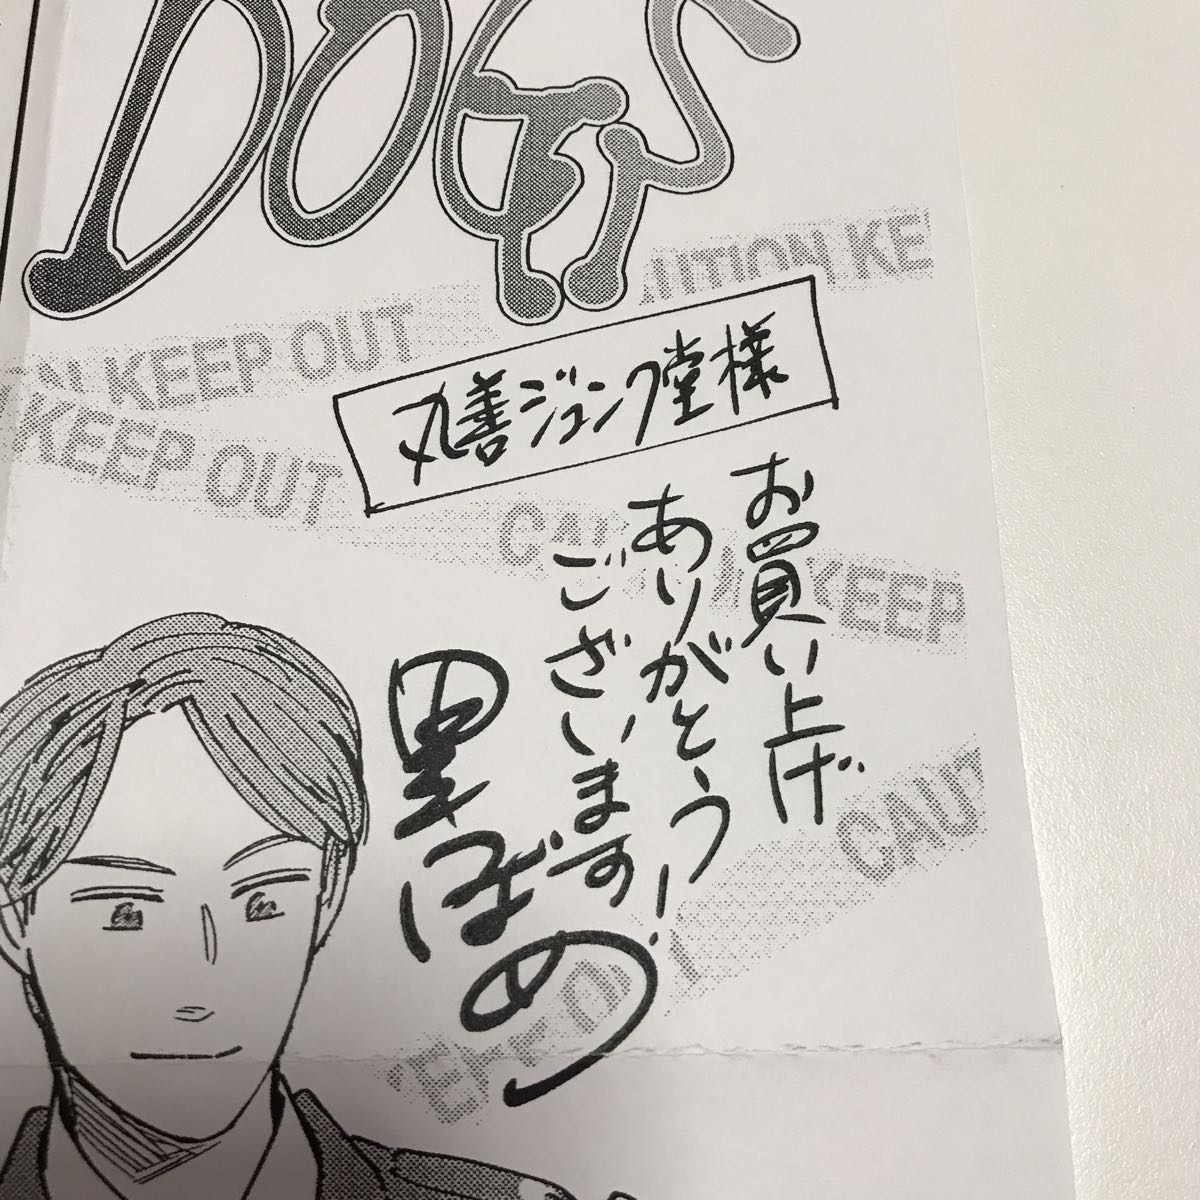 DOGS
AUTION KE
N KEEP OUT
KEEP OUT
丸善ジュンク堂様
CAU
KEEP
お買い上げ
ありがとう!
ございます
里ばめ
CAUT